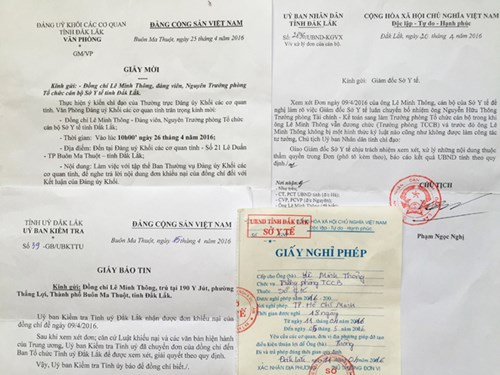 ĐẢNG UỶ KHỐI CÁC CƠ QUAN
TỈNH ĐẮK LẮK
VĂN PHÒNG
GM/VP
ĐẢNG CỘNG SẢN VIỆT NAM
Buôn Ma Thuột, ngày 25 tháng 4 năm 2016
GIẤY MỜI
Kính gửi: - Đồng chí Lê Minh Thông, đảng viên, Nguyên Trưởng phòng
Tổ chức cán bộ Sở Y tế tỉnh Đắk Lắk.
Thực hiện ý kiến chỉ đạo của Thường trực Đảng ủy Khối các cơ quan
tỉnh. Văn Phòng Đảng uỷ Khối các cơ quan tỉnh trân trọng kính mời:
- Đồng chí Lê Minh Thông, đảng viên, Nguyên Trưởng phòng Tổ chức
cán bộ Sở Y tế tỉnh Đắk Lắk;
- Thời gian: Vào lúc 10h00' ngày 26 tháng 4 năm 2016;
- Địa điểm: Tại Đảng uỷ Khối các cơ quan tỉnh - Số 21 Lê Duẩn
- TP Buôn Ma Thuột - tỉnh Đắk Lắk;
- Nội dung: Làm việc với tập thể Ban Thường vụ Đảng ủy Khối các cơ
quan tỉnh, để nghe trả lời nội dung đơn khiếu nại của đồng chí đối với
Kết luận của Đảng uỷ Khối.
UỶ BAN NHÂN DÂN
TỈNH ĐẮK LẮK
Số: /UBND-KGVX
V/v xử lý đơn của cán bộ.
CỘNG HÒA XÃ HỘI CHỦ NGHĨA VIỆT NAM
Độc lập - Tự do - Hạnh phúc
Đắk Lắk, ngày 20 tháng 4 năm 2016
Kính gửi: Giám đốc Sở Y tế.
Xem xét Đơn ngày 09/4/2016 của ông Lê Minh Thông,
nghị làm rõ việc Giám đốc Sở Y tế luân chuyển bổ nhiệm ông Nguyễn Hữu Thông
Trưởng phòng Tài chính - Kế toán sang làm Trưởng phòng Tổ chức cán bộ trong khi
ông Lê Minh Thông vẫn đương chức (Trưởng phòng TCCB) và trước đó ông Lê
Minh Thông không bị một hình thức kỷ luật nào cũng như không được làm công tác
tư tưởng, Chủ tịch Uỷ ban Nhân dân tỉnh chỉ đạo:
Giao Giám đốc Sở Y tế chịu trách nhiệm xem xét, xử lý những nội dung thuộc
thẩm quyền trong Đơn (phô tô kèm theo), báo cáo kết quả UBND tỉnh theo quy
định./.
Nơi nhận:
- Như trên;
- CT, PCT UBND tỉnh
CHỦ TỊCH
Phạm Ngọc Nghị
TỈNH UỶ ĐẮK LẮK
UỶ BAN KIỂM TRA
Số 39 -GB/UBKTTU
ĐẢNG CỘNG SẢN VIỆT NAM
Buôn Ma Thuột, ngày 15 tháng 4 năm 2016
GIẤY BÁO TIN
Kính gửi: Đồng chí Lê Minh Thông, trú tại 190 Y Jút, phường
Thắng Lợi, Thành phố Buôn Ma Thuột, tỉnh Đắk Lắk.
Uỷ ban Kiểm tra Tỉnh uỷ nhận được đơn khiếu nại của đồng
chí đề ngày 09/4/2016.
Sau khi xem xét đơn; căn cứ Luật khiếu nại và các văn bản hiện hành
của Trung ương, Uỷ ban Kiểm tra Tỉnh uỷ đã chuyển đơn của đồng chí đến
Ban Tổ chức Tỉnh uỷ Đắk Lắk để được xem xét, giải quyết theo quy định.
Vậy, Uỷ ban Kiểm tra Tỉnh ủy báo để đồng chí biết./.
UBND TỈNH ĐẮK LẮK
SỞ Y TẾ
HÒA XÃ HỘI CHỦ NGHĨA VIỆT NAM
Độc lập - Tự do - Hạnh phúc
GIẤY NGHỈ PHÉP
Cấp cho Ông (bà): Lê Minh Thông
Trưởng phòng TCCB
Sở Y tế
Được nghỉ phép năm 2016
TP. Hồ Chí Minh
Thời gian nghỉ phép
Từ ngày
Đến ngày